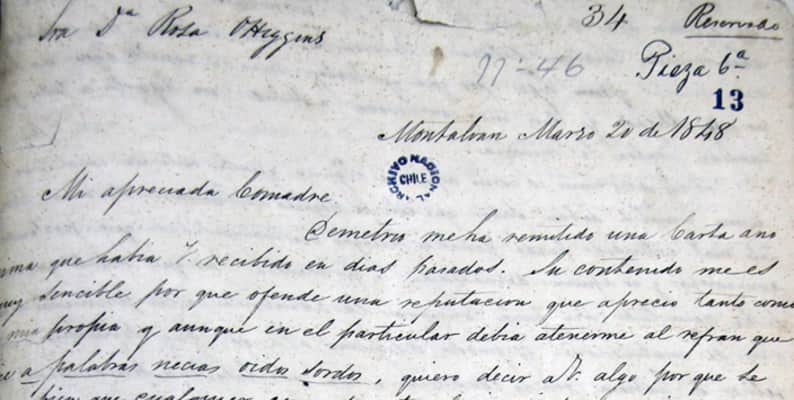 Sra Dª Rosa OHiggins
34 Reservado
77-46
Pieza 6ª
13
Montalvan Marzo 20 de 1848
ARCHIVO NACIONAL CHILE
Mi apreciada Comadre
Demetrio me ha remitido una Carta ano
nima que habia V. recibido en dias pasados. Su contenido me es
muy sencible por que ofende una reputacion que aprecio tanto como
mia propia y aunque en el particular debia atenerme al refran que
a palabras necias oidos sordos, quiero decir a V. algo por que se
bien que cualquier